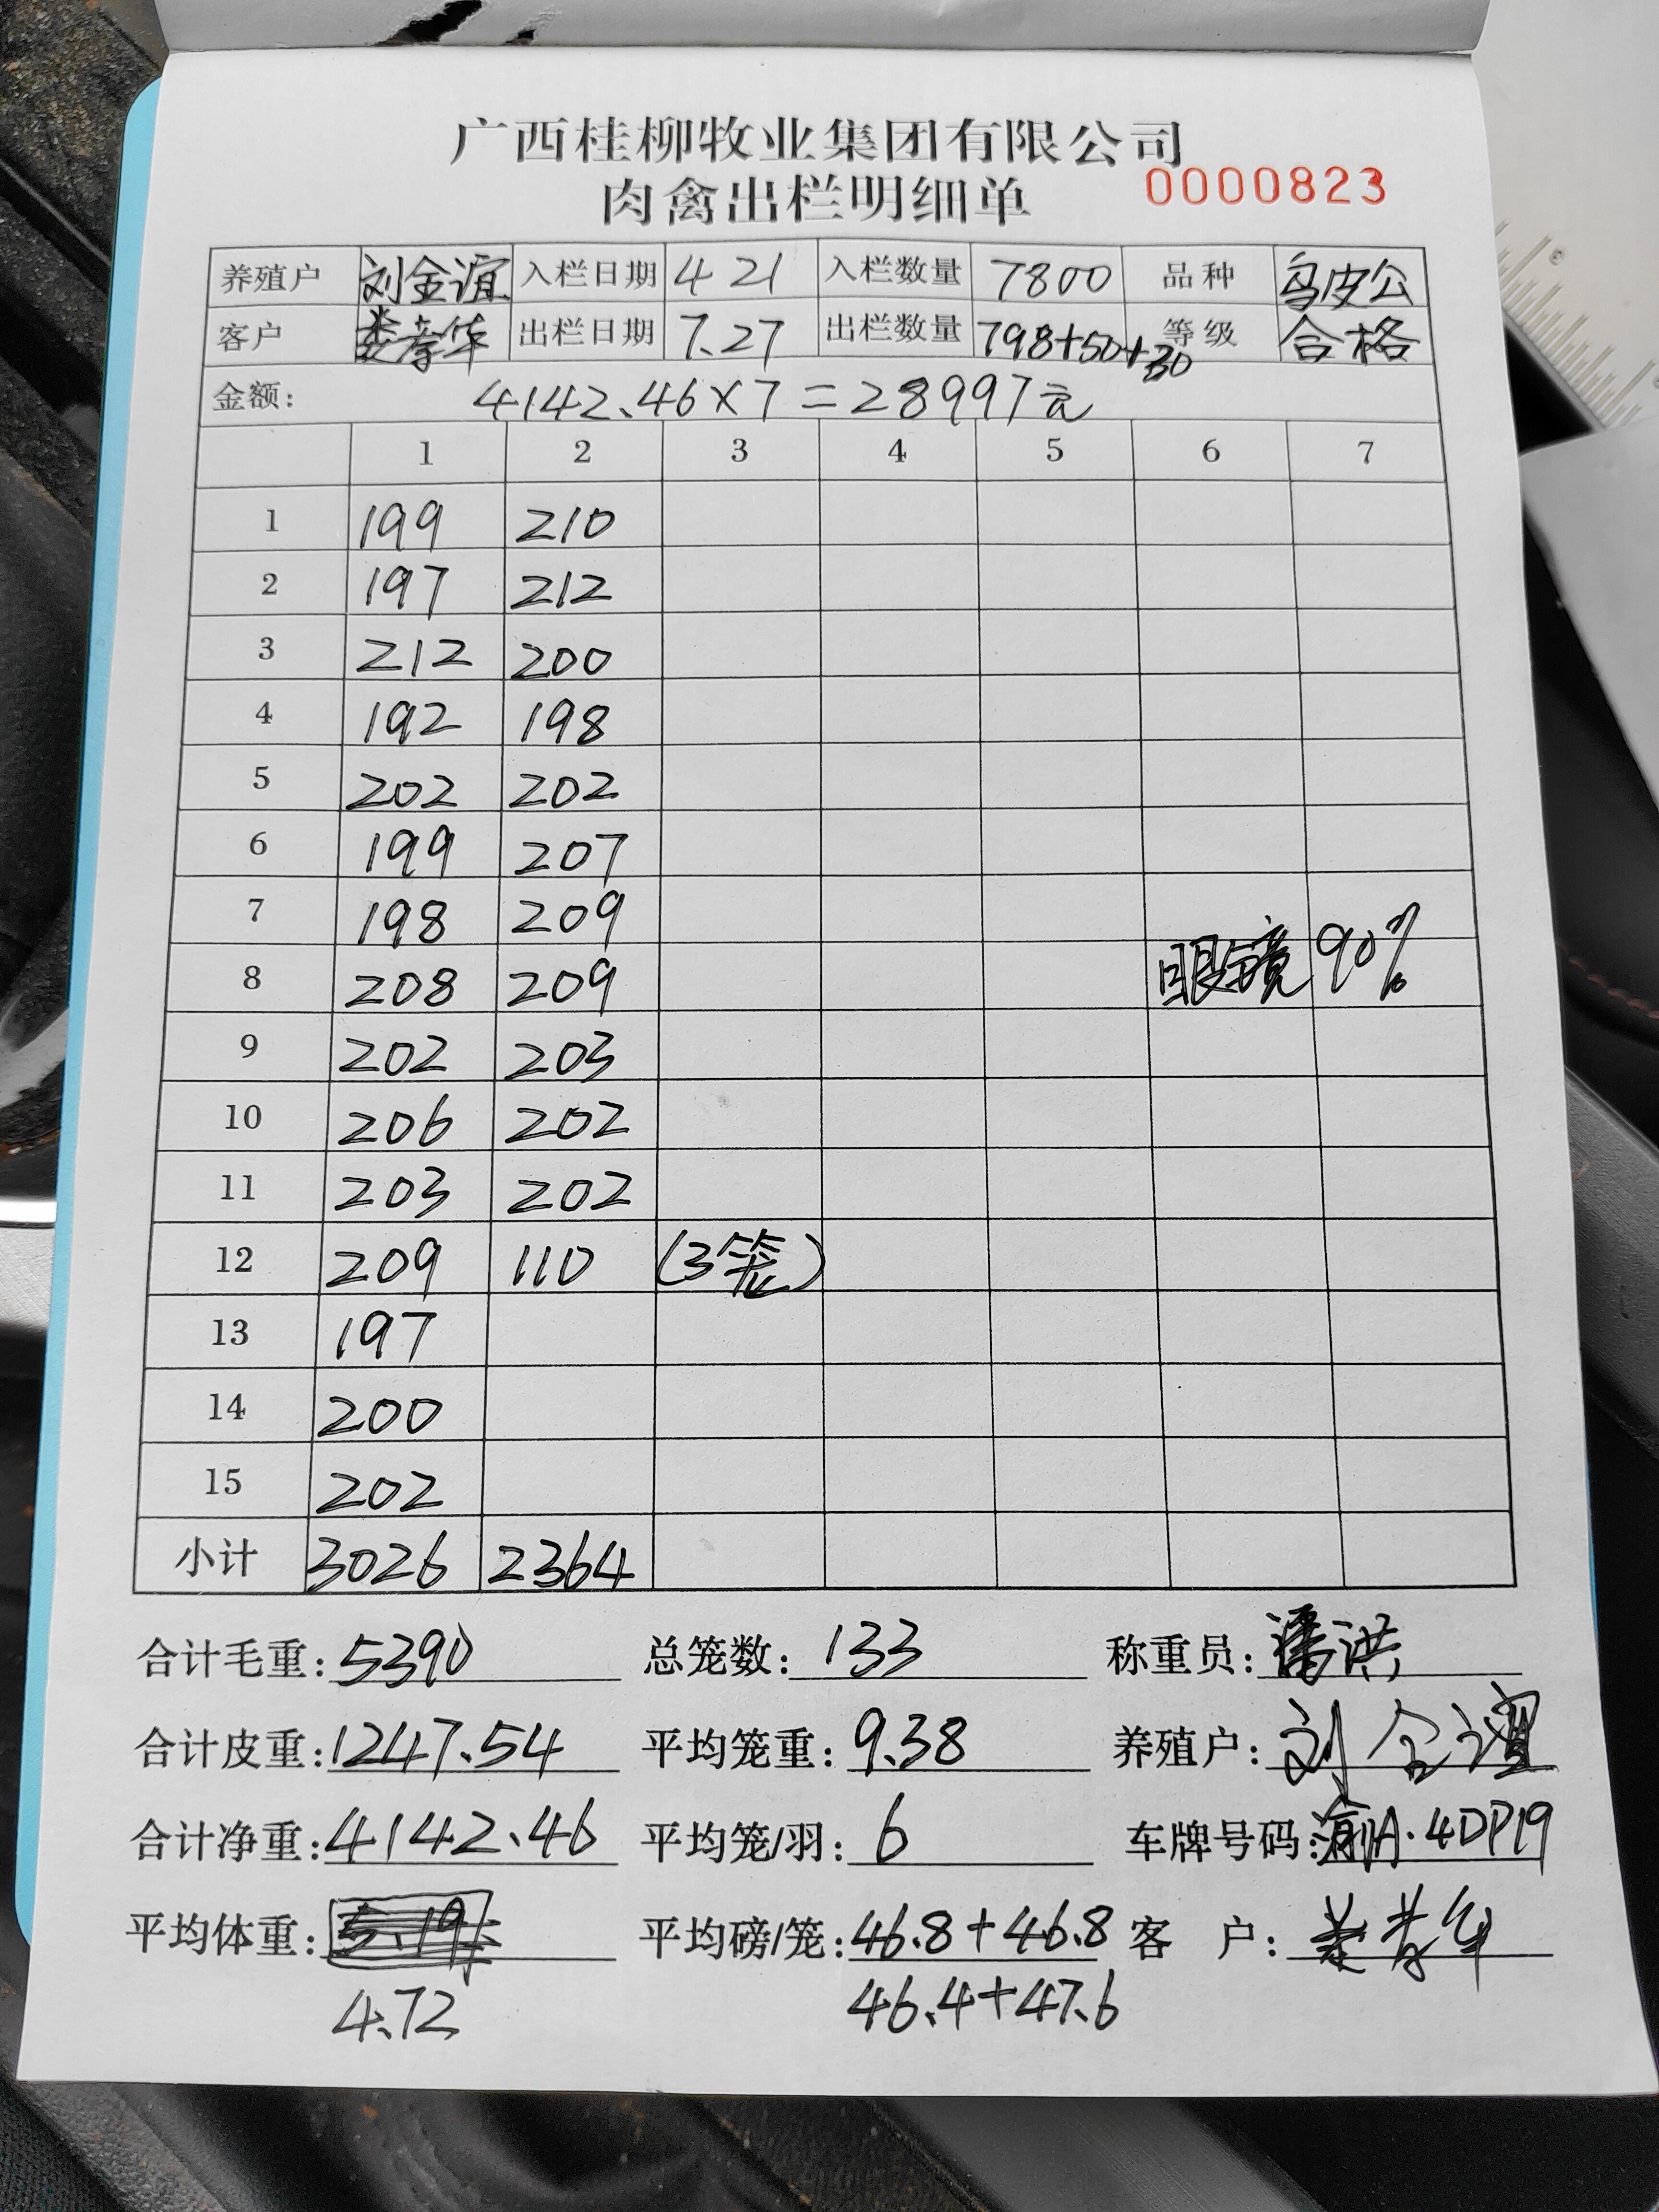 广西桂柳牧业集团有限公司
肉禽出栏明细单 0000823
养殖户 刘金谊 入栏日期 4 21 入栏数量 7800 品种 乌皮公
客户 娄孝华 出栏日期 7.27 出栏数量 798+50+30 等级 合格
金额: 4142.46×7=28997元
1 2 3 4 5 6 7
1 199 210
2 197 212
3 212 200
4 192 198
5 202 202
6 199 207
7 198 209
8 208 209 眼镜90%
9 202 203
10 206 202
11 203 202
12 209 110 (3笼)
13 197
14 200
15 202
小计 3026 2364
合计毛重: 5390 总笼数: 133 称重员: 潘洪
合计皮重: 1247.54 平均笼重: 9.38 养殖户: 刘金谊
合计净重: 4142.46 平均笼/羽: 6 车牌号码: 渝A·4DP19
平均体重: 平均磅/笼: 46.8+46.8 客 户: 娄孝华
4.72 46.4+47.6